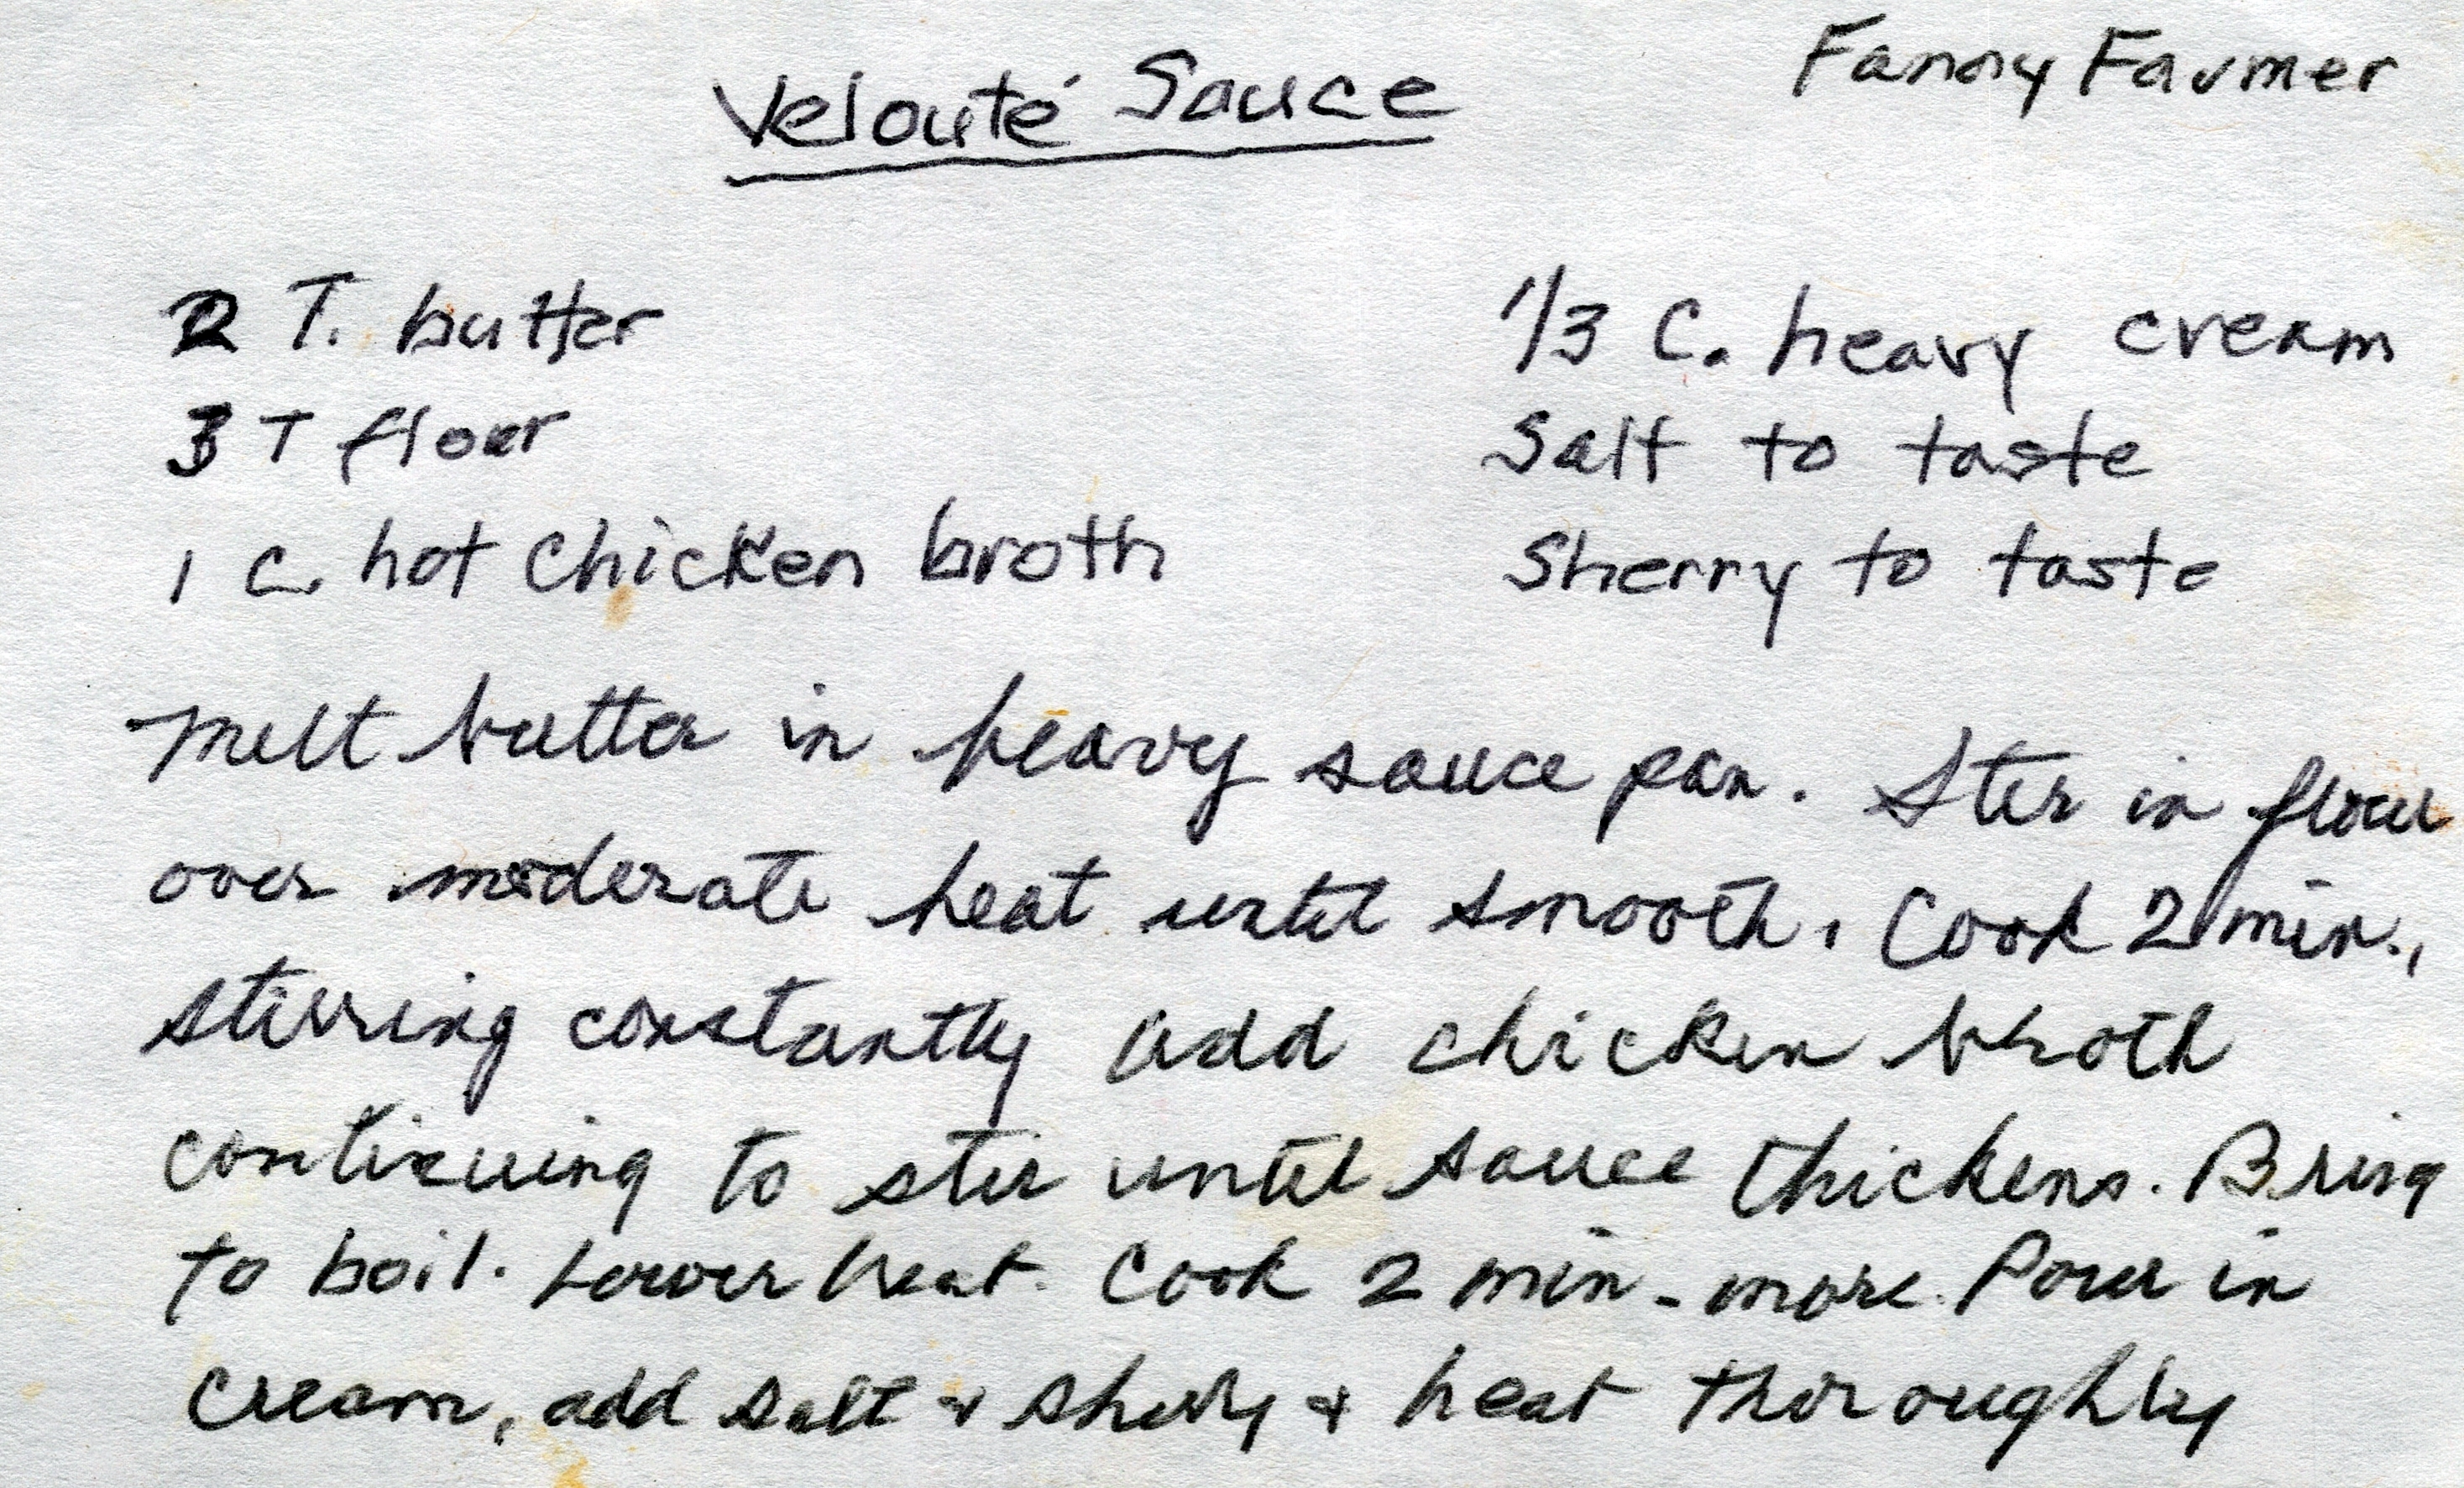 Fanny Farmer
Velouté Sauce
2 T. butter
3 T flour
1 C. hot chicken broth
1/3 C. heavy cream
Salt to taste
Sherry to taste
Melt butter in heavy sauce pan. Stir in flour
over moderate heat until smooth. Cook 2 min.,
stirring constantly add chicken broth
continuing to stir until sauce thickens. Bring
to boil. Lower heat. Cook 2 min. more. Pour in
cream, add salt & sherry & heat thoroughly